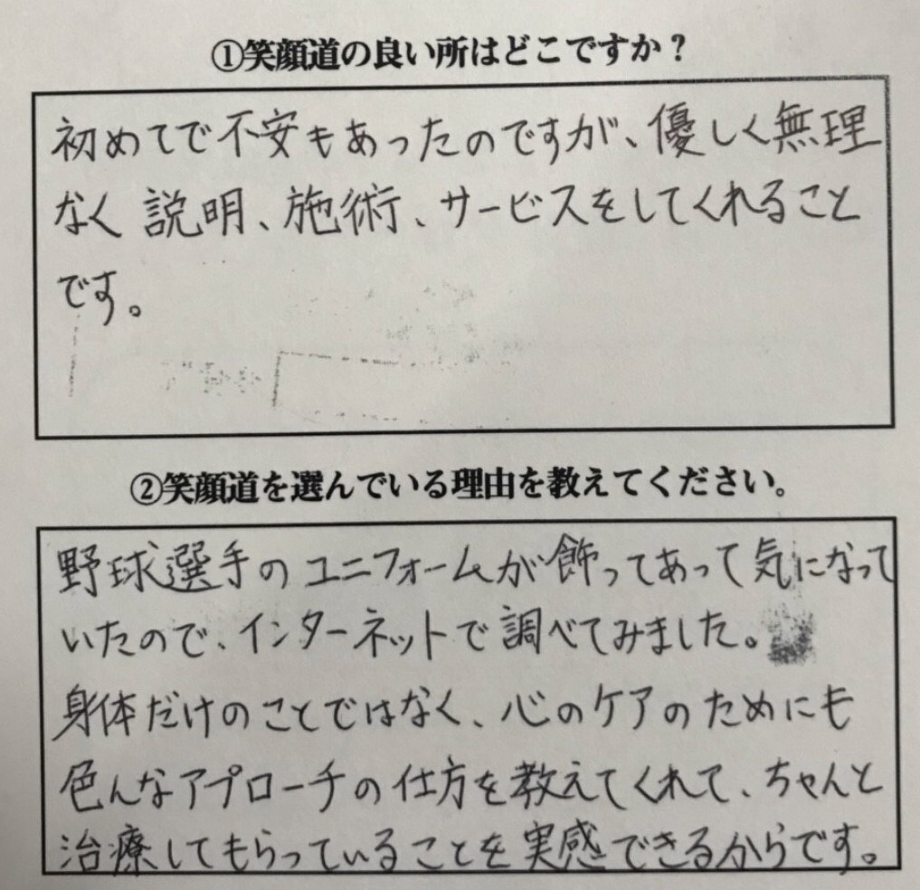 ①笑顔道の良い所はどこですか？
初めてで不安もあったのですが、優しく無理
なく説明、施術、サービスをしてくれること
です。
②笑顔道を選んでいる理由を教えてください。
野球選手のユニフォームが飾ってあって気になって
いたので、インターネットで調べてみました。
身体だけのことではなく、心のケアのためにも
色んなアプローチの仕方を教えてくれて、ちゃんと
治療してもらっていることを実感できるからです。